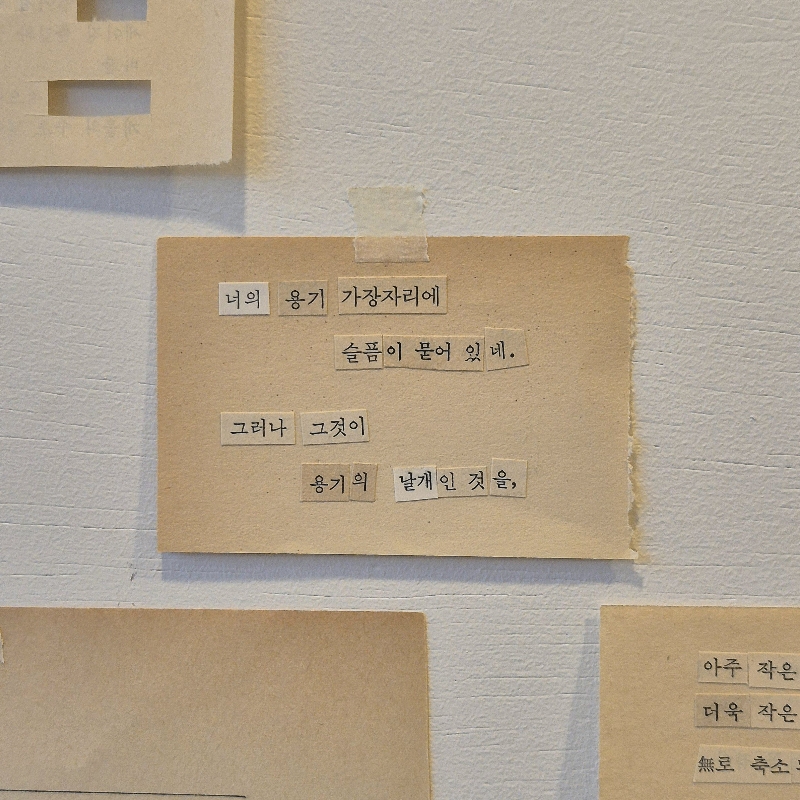 너의 용기 가장자리에
슬픔이 묻어 있네.
그러나 그것이
용기의 날개인 것을,
아주 작은
더욱 작은
無로 축소